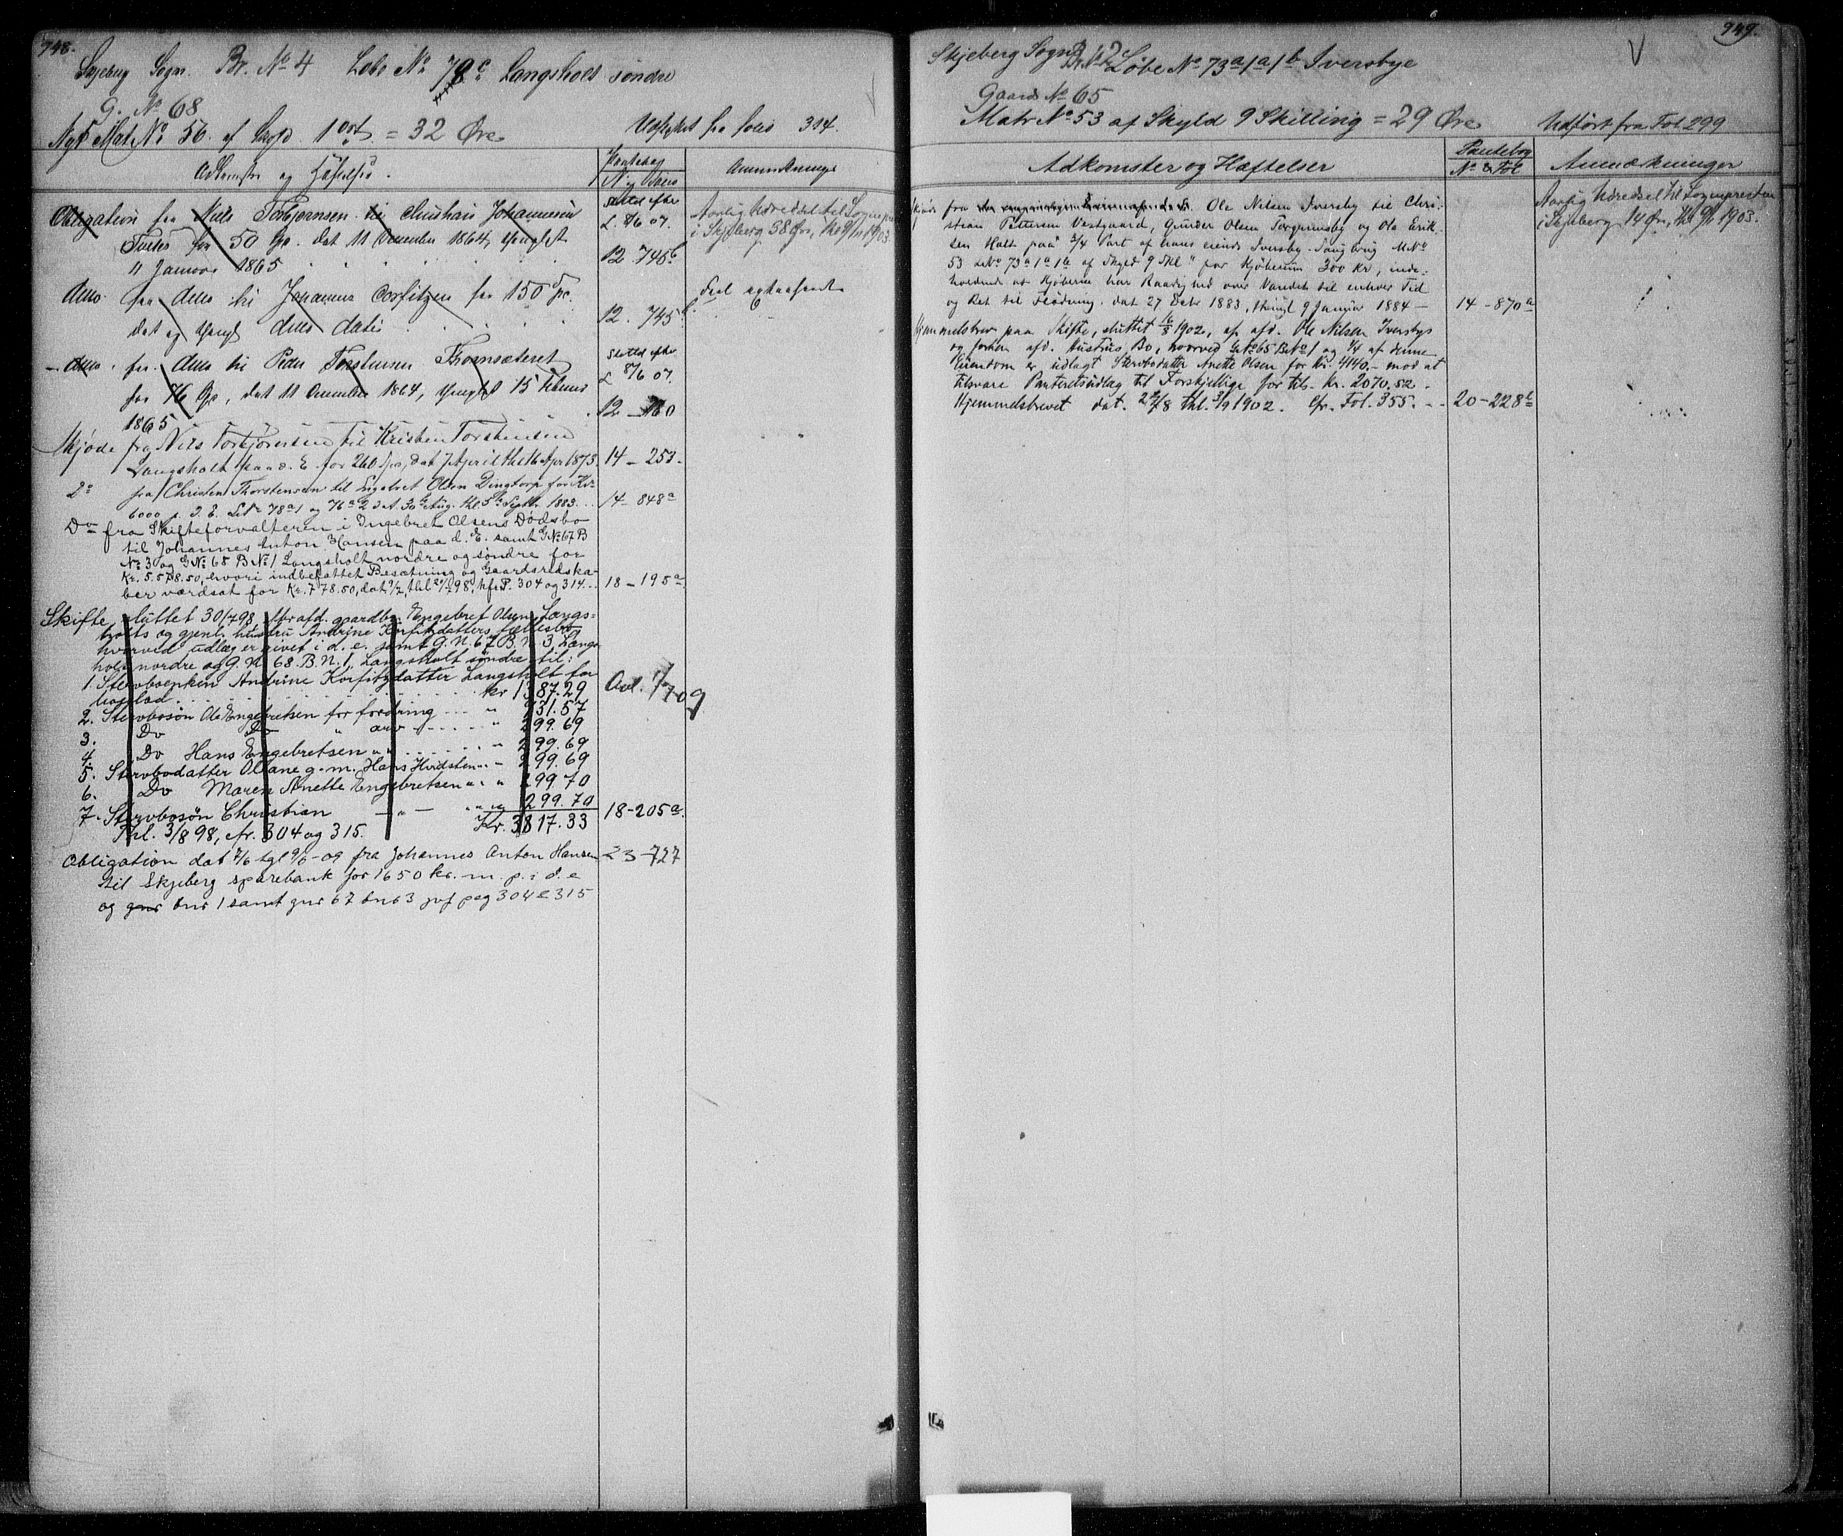 748.
Skjeberg Sogn. Br. No 4 Løbe No 78c Langsholt søndre
G. No 68
Nyt Mat No 56. af Skyld 1 ort. = 32 Øre Udstykket fra folio 314.
Adkomster og Hæftelser.
Pantebog
No og Folio
Anmærkninger
Obligation fra Niels Torbjørnsen til Christian Johannesen
for 50 Sp. dat 11 December 1864, thinglæst
11 Januar 1865
12 745b
Aarlig Udredsel til Sognepr.
i Skjeberg 58 Øre, thl 9/11 1903.
ditto. fra ditto til Johannes Corfitzen for 150 Sp.
dat og thingl ditto datis
12. 745
ditto. fra ditto til Peder Torstensen Thornsæteret
for 76 Sp, dat 11 December 1864, thinglæst 15 Februar
1865
slettet efter
L 8/6 07.
12 - 760
Skjøde fra Nils Torbjørnsen til Kristen Torstensen
Langsholt paa d. E. for 260 Spd, dat 7 April thl 16 Apr 1873. 14 - 253.
Do fra Christen Thorstensen til Engebret Olsen Dingtorp for Kr
6000 p. d. E. L No 78a1 og 76a2 dat 30te Aug. thl 5te Septb. 1883. 14 - 848a
Do fra Skifteforvalteren i Ingebret Olsens Dødsbo
til Johannes Anton Hansen paa d. E. samt G No 67 B
No 3 og G No 68 B No 1 Langsholt nordre og søndre for
Kr. 5.578.50, hvori indbefattet Besætning og Gaardsredska-
ber værdsat for Kr. 778.50, dat 9/2, thl 21/2 98, kfr P. 304 og 314. 18 - 195a
Skifte sluttet 30/7 98, efter afd. gaardbr. Engebret Olsen Langs-
holts og gjenl. hustru Andrine Korfitzdatters fællesbo
hvorved udlæg er givet i d. e. samt G. N. 67 B. N. 3, Langs-
holt nordre og G. N. 68. B. N. 1, Langsholt søndre til:
1. Stervboenken Andrine Korfitzdatter Langsholt for
boslod kr 1387.29
2. Stervbosøn Ole Engebretsen for fordring " 931.57
3. Do Do " arv " 299.69
4. Do Hans Engebretsen " " 299.69
5. Stervbodatter Oliane g. m. Hans Hvidsten " " 299.69
6. Do Maren Anette Engebretsen " " 299.70
7. Stervbosøn Christian " " 299.70
Kr. 3817.33
Thl. 3/8 98, cfr. 304 og 315.
Avl. 7/7 09
18-205a.
Obligation dat 7/6 tgl 9/6-09 fra Johannes Anton Hansen 23-727
til Skjeberg sparebank for 1650 kr. m. p. i d. e
og gnr bnr 1 samt gnr 67 bnr 3 jvf pag 304 & 315
949.
Skjeberg Sogn Br No 2 Løbe No 73a1a1b Iversbye
Gaards No 65
Matr No 53 af Skyld 9 Skilling = 29 Øre Udført fra Fol 299
Adkomster og Hæftelser
Pantebog
No & Fol
Anmærkninger
Skjøde fra Ole Nilsen Iversby til Chri-
stian Pettersen Vestgaard, Gunder Olsen Torpernsby og Ole Erik-
sen Holt paa 3/4 Part af hans eiende Iversby Saugbrug M No
53 L No 73a1a1b af Skyld 9 Skl for Kjøbesum 300 kr, inde-
holdende at Kjøberne har Raadighed over Vandet til enhver Tid
og Ret til Flødning. dat 27 Decbr 1883, thingl 9 Januar 1884 - 14 - 870a
Aarlig Udredsel til Sognepresten
i Skjeberg 14 Øre, thl 9/11 1903.
Hjemmelsbrev paa Skifte, sluttet 16/8 1902, ef. afd. Ole Nilsen Iversbys
og forhen afd. Hustrus Bo, hvorved G No 65 B No 1 og 1/4 af denne
Eiendom er udlagt Stervbodatter Anette Olsen for kr. 4140.- mod at
tilsvare Panteretsudlag til Forskjellige for tils. kr. 2070.52.
Hjemmelsbrevet dat. 29/8 thl. 3/9 1902. Cfr. Fol. 355. 20-228b